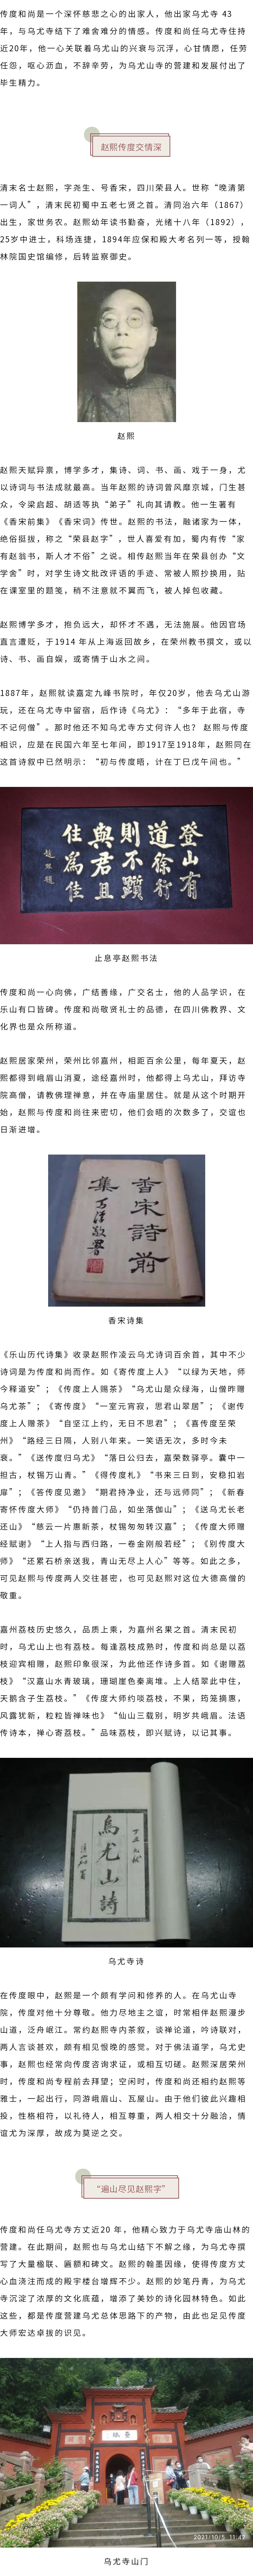 传度和尚是一个深怀慈悲之心的出家人，他出家乌尤寺 43
年，与乌尤寺结下了难舍难分的情感。传度和尚任乌尤寺住持
近20年，他一心关联着乌尤山的兴衰与沉浮，心甘情愿，任劳
任怨，呕心沥血，不辞辛劳，为乌尤山寺的营建和发展付出了
毕生精力。
赵熙传度交情深
清末名士赵熙，字尧生、号香宋，四川荣县人。世称“晚清第
一词人”，清末民初蜀中五老七贤之首。清同治六年（1867）
出生，家世务农。赵熙幼年读书勤奋，光绪十八年（1892），
25岁中进士，科场连捷，1894年应保和殿大考名列一等，授翰
林院国史馆编修，后转监察御史。
赵熙
赵熙天赋异禀，博学多才，集诗、词、书、画、戏于一身，尤
以诗词与书法成就最高。当年赵熙的诗词曾风靡京城，门生甚
众，令梁启超、胡适等执“弟子”礼向其请教。他一生著有
《香宋前集》《香宋词》传世。赵熙的书法，融诸家为一体，
绝俗挺拔，称之“荣县赵字”，世人喜爱有加，蜀内有传“家
有赵翁书，斯人才不俗”之说。相传赵熙当年在荣县创办“文
学舍”时，对学生诗文批改评语的手迹、常被人照抄换用，贴
在课室里的题笺，稍不注意就不翼而飞，被人掉包收藏。
赵熙博学多才，抱负远大，却怀才不遇，无法施展。他因官场
直言遭贬，于1914 年从上海返回故乡，在荣州教书撰文，或以
诗、书、画自娱，或寄情于山水之间。
1887年，赵熙就读嘉定九峰书院时，年仅20岁，他去乌尤山游
玩，还在乌尤寺中留宿，后作诗《乌尤》：“多年于此宿，寺
不记何僧”。那时他还不知乌尤寺方丈何许人也？ 赵熙与传度
相识，应是在民国六年至七年间，即1917至1918年，赵熙同在
这首诗叙中已然明示：“初与传度晤，计在丁巳戊午间也。”
登山有
道徐行
则不踬
與君且
住為佳
趙熙題
止息亭赵熙书法
传度和尚一心向佛，广结善缘，广交名士，他的人品学识，在
乐山有口皆碑。传度和尚敬贤礼士的品德，在四川佛教界、文
化界也是众所称道。
赵熙居家荣州，荣州比邻嘉州，相距百余公里，每年夏天，赵
熙都得到峨眉山消夏，途经嘉州时，他都得上乌尤山，拜访寺
院高僧，请教佛理禅意，并在寺庙里居住。就是从这个时期开
始，赵熙与传度和尚往来密切，他们会晤的次数多了，交谊也
日渐进增。
香宋詩前
集
香宋诗集
《乐山历代诗集》收录赵熙作凌云乌尤诗词百余首，其中不少
诗词是为传度和尚而作。如《寄传度上人》“以绿为天地，师
今释道安”；《传度上人赐茶》“乌尤山是众绿海，山僧昨赠
乌尤茶”；《寄传度》“一室元宵寂，思君山翠居”；《谢传
度上人赠茶》“自坚江上约，无日不思君”；《喜传度至荣
州》“路经三日隔，人别八年来。一笑语无次，多时今未
衰。”《送传度归乌尤》“落日公归去，嘉荣数驿亭。囊中一
担古，杖锡万山青。”《得传度札》“书来三日到，安稳扣岩
扉”；《答传度见邀》“期君持净业，还与远师同”；《新春
寄怀传度大师》“仍持普门品，如坐落伽山”；《送乌尤长老
还山》“慈云一片惠新茶，杖锡匆匆转汉嘉”；《传度大师赠
经赋谢》“上人指与西归路，一卷金刚般若经”；《别传度大
师》“还累石桥亲送我，青山无尽上人心”等等。如此之多，
可见赵熙与传度两人交往甚密，也可见赵熙对这位大德高僧的
敬重。
嘉州荔枝历史悠久，品质上乘，为嘉州名果之首。清末民初
时，乌尤山上也有荔枝。每逢荔枝成熟时，传度和尚总是以荔
枝迎宾相赠，赵熙印象很深，为此他还作诗多首。如《谢赠荔
枝》“汉嘉山水青玻璃，珊瑚崖色秦离堆。上人结翠此中住，
天鹅含子生荔枝。”《传度大师约啖荔枝，不果，筠笼摘惠，
风露犹新，粒粒皆禅味也》“仙山三载别，明岁共峨眉。法语
传诗本，禅心寄荔枝。”品味荔枝，即兴赋诗，以记其事。
烏尤山詩
乌尤寺诗
在传度眼中，赵熙是一个颇有学问和修养的人。在乌尤山寺
院，传度对他十分尊敬。他力尽地主之谊，时常相伴赵熙漫步
山道，泛舟岷江。常约赵熙寺内茶叙，谈禅论道，吟诗联对，
两人言谈甚欢，颇有相见恨晚的感觉。对于佛法道学，乌尤史
事，赵熙也经常向传度咨询求证，或相互切磋。赵熙深居荣州
时，传度和尚专程前去拜望；空闲时，传度和尚还相约赵熙等
雅士，一起出行，同游峨眉山、瓦屋山。由于他们彼此兴趣相
投，性格相符，以礼待人，相互尊重，两人相交十分融洽，情
谊尤为深厚，故成为莫逆之交。
“遍山尽见赵熙字”
传度和尚任乌尤寺方丈近20 年，他精心致力于乌尤寺庙山林的
营建。在此期间，赵熙也与乌尤山结下不解之缘，为乌尤寺撰
写了大量楹联、匾额和碑文。赵熙的翰墨因缘，使得传度方丈
心血浇注而成的殿宇楼台增辉不少。赵熙的妙笔丹青，为乌尤
寺沉淀了浓厚的文化底蕴，增添了美妙的诗化园林特色。如此
这些，都是传度营建乌尤总体思路下的产物，由此也足见传度
大师宏达卓拔的识见。
2021/10/5 11:47
乌尤寺山门